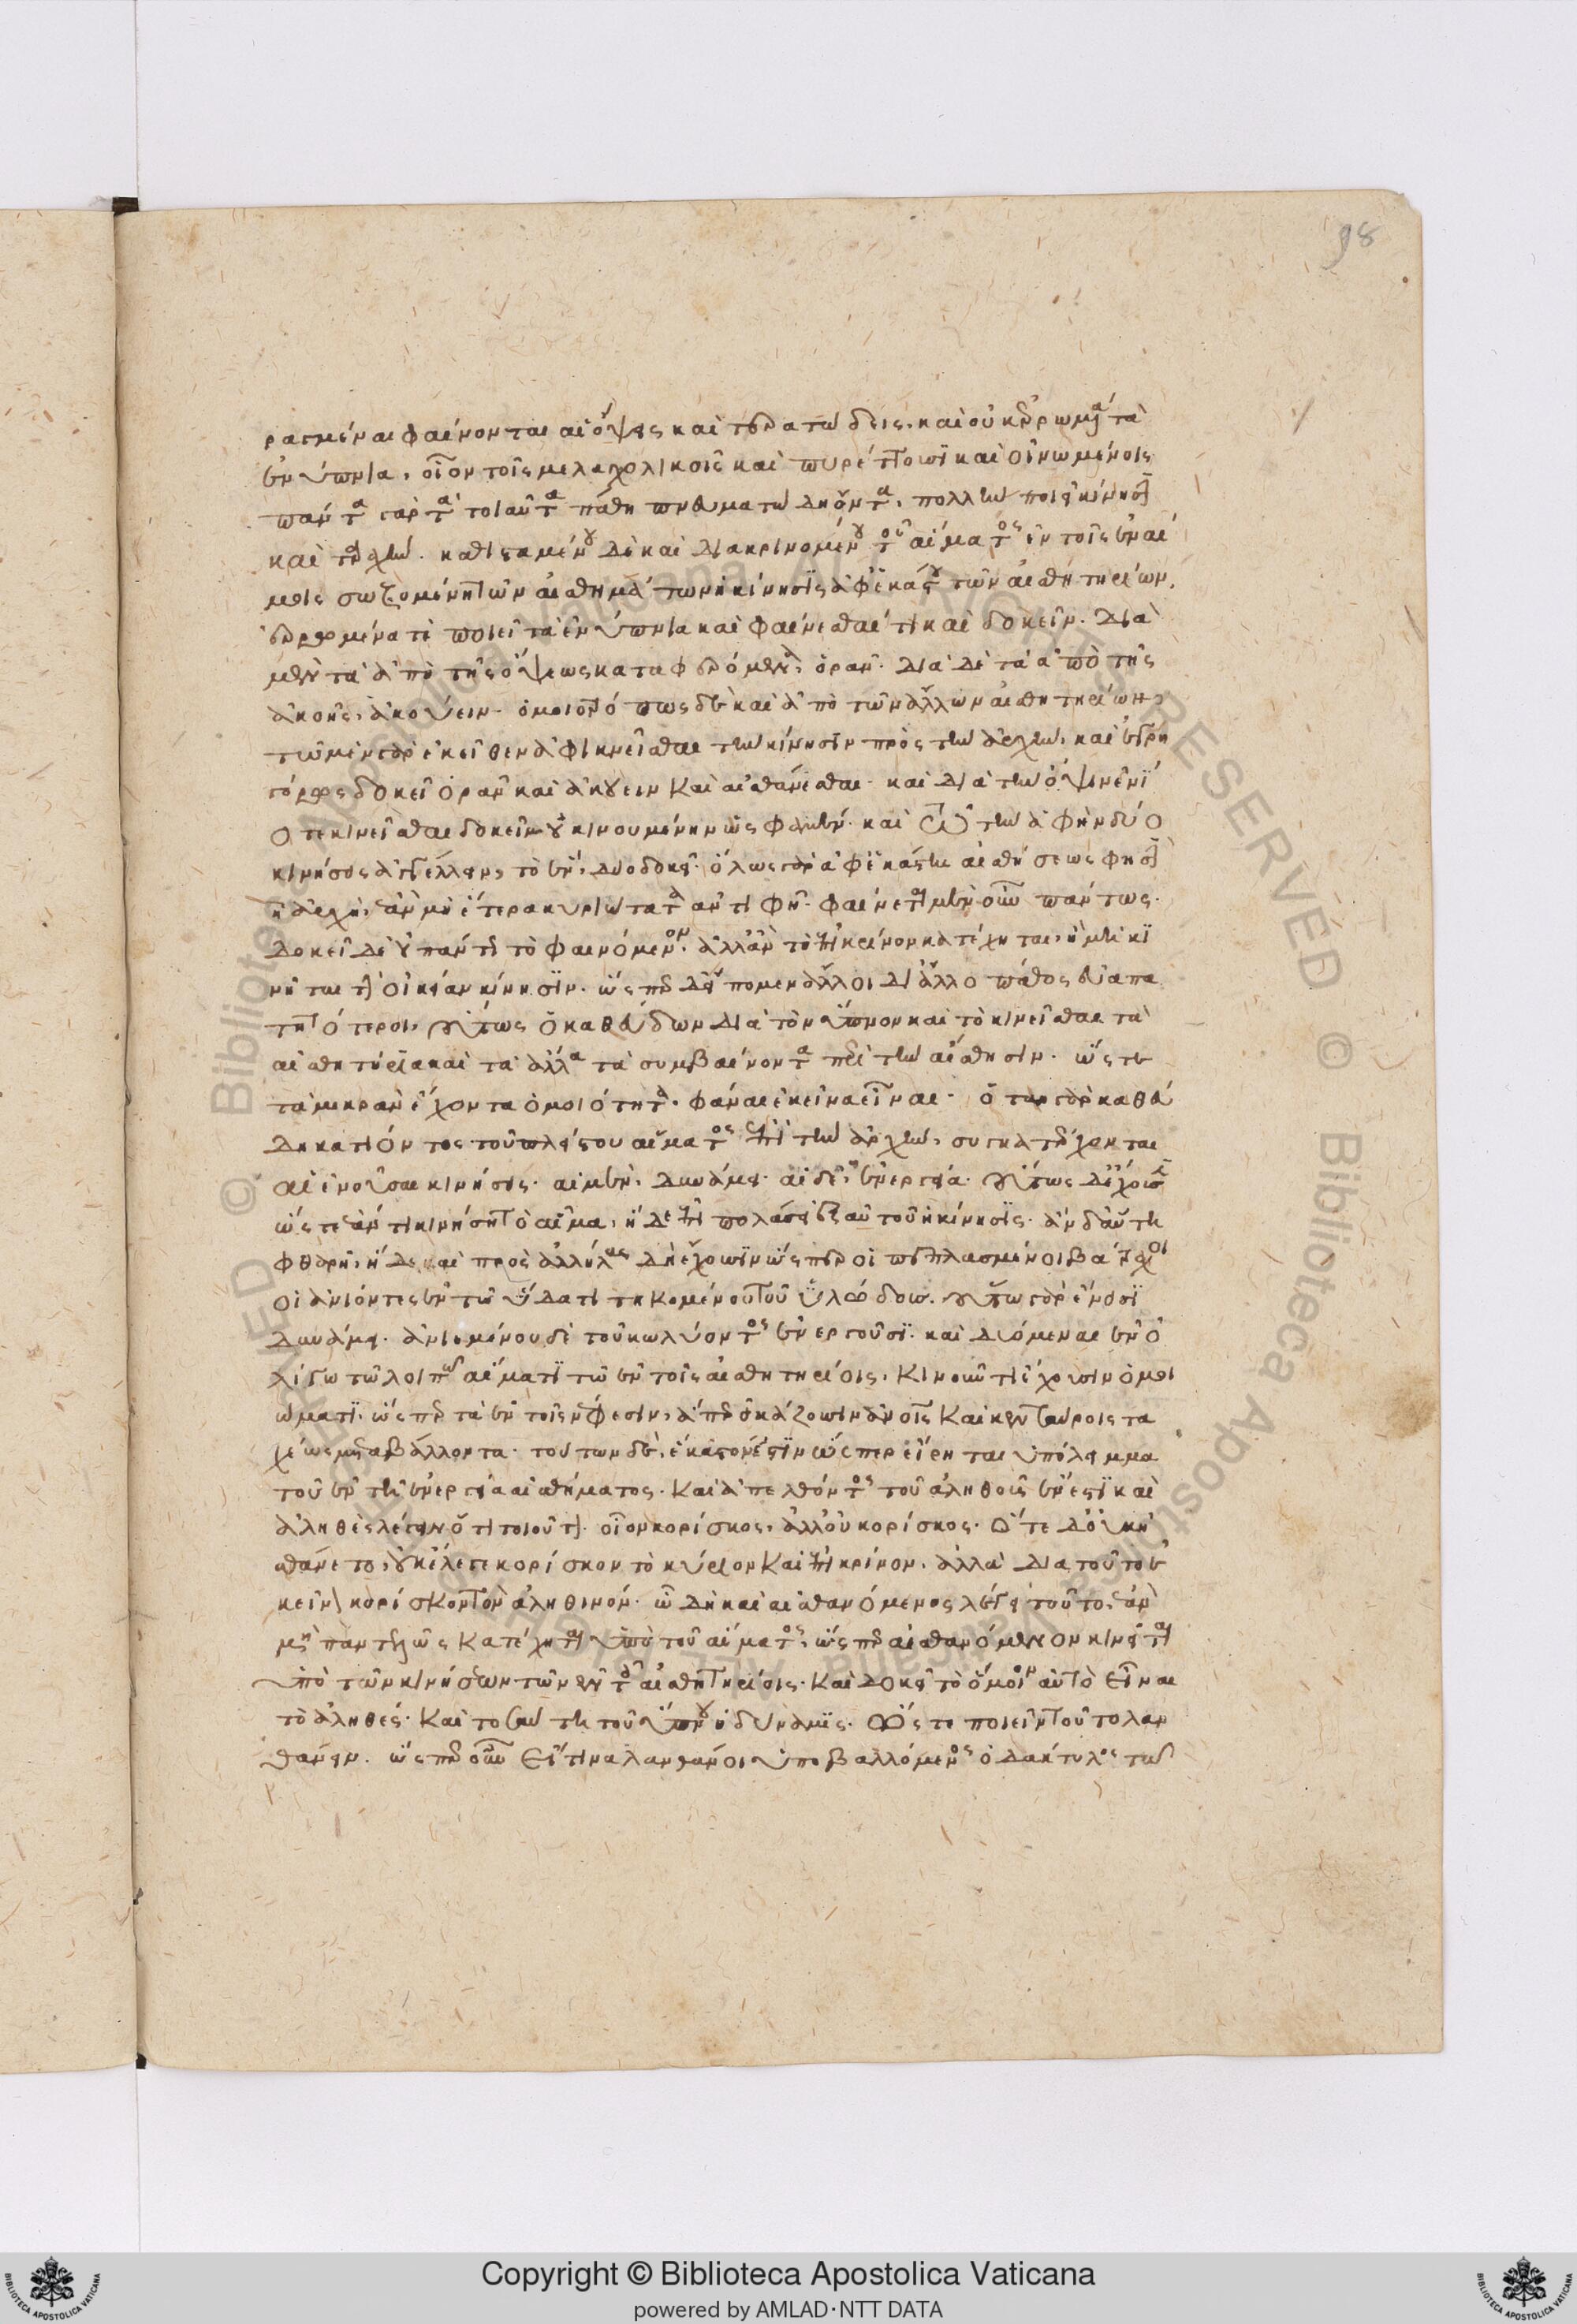 98
ραγμέναι φαίνονται αἱ ὄψεις καὶ τερατώδεις, καὶ οὐκ ἐρρωμένα τὰ
ἐνύπνια, οἷον τοῖς μελαγχολικοῖς καὶ πυρέττουσι καὶ οἰνωμένοις
πάντα γὰρ τὰ τοιαῦτα πάθη πνευματώδη ὄντα, πολλὴν ποιεῖ κίνησιν
καὶ ταραχήν. καθισταμένου δὲ καὶ διακρινομένου τοῦ αἵματος ἐν τοῖς ἐναί
μοις σωζομένη τῶν αἰσθημάτων ἡ κίνησις ἀφ' ἑκάστου τῶν αἰσθητηρίων,
ἐρρωμένα τε ποιεῖ τὰ ἐνύπνια καὶ φαίνεσθαί τι καὶ δοκεῖν. διὰ
μὲν τὰ ἀπὸ τῆς ὄψεως καταφερόμενα, ὁρᾶν. διὰ δὲ τὰ ἀπὸ τῆς
ἀκοῆς, ἀκούειν. ὁμοιοτρόπως δὲ καὶ ἀπὸ τῶν ἄλλων αἰσθητηρίων,
τῷ μὲν γὰρ ἐκεῖθεν ἀφικνεῖσθαι τὴν κίνησιν πρὸς τὴν ἀρχὴν, καὶ ἐγρη
γορὼς δοκεῖ ὁρᾶν καὶ ἀκούειν καὶ αἰσθάνεσθαι. καὶ διὰ τὴν ὄψιν ἐνί
οτε κινεῖσθαι δοκεῖν οὐ κινουμένην ὥς φαμεν. καὶ τῷ τὴν ἁφὴν δύο
κινήσεις ἀγγέλλειν, τὸ ἓν, δύο δοκεῖ. ὅλως γὰρ ἀφ' ἑκάστης αἰσθήσεως φησὶν
ἡ ἀρχὴ, ἐὰν μὴ ἑτέρα κυριωτάτα ἀντιφῇ. φαίνεται μὲν οὖν πάντως.
δοκεῖ δὲ οὐ πάντη τὸ φαινόμενον. ἀλλ' ἂν τὸ ἐπικρίνον κατέχηται, ἢ μὴ κι
νῆται τὴν οἰκείαν κίνησιν. ὥσπερ δ' εἴπομεν ἄλλοι δι' ἄλλο πάθος εὐαπά
τητότεροι, οὕτως ὁ καθεύδων διὰ τὸν ὕπνον καὶ τὸ κινεῖσθαι τὰ
αἰσθητήρια καὶ τὰ ἄλλα τὰ συμβαίνοντα περὶ τὴν αἴσθησιν. ὥστε
τὰ μικρὰν ἔχοντα ὁμοιότητα, φάναι ἐκεῖνα εἶναι. ὅταν γὰρ καθεύ
δη κατιόντος τοῦ πλείστου αἵματος ἐπὶ τὴν ἀρχὴν, συγκατέρχονται
αἱ ἐνοῦσαι κινήσεις. αἱ μὲν, δυνάμει. αἱ δὲ, ἐνεργείᾳ. οὕτως δ' ἔχουσιν
ὥστε ἐάν τι κινήσῃ τὸ αἷμα, ἥδε ἐπιπολάσει ἐξ αὐτοῦ ἡ κίνησις. ἂν δ' αὕτη
φθαρῇ, ἥδε. καὶ πρὸς ἀλλήλας δὴ ἔχουσιν ὥσπερ οἱ πεπλασμένοι βάτραχοι
οἱ ἀνιόντες ἐν τῷ ὕδατι τηκομένου τοῦ ἁλώδους. οὕτω γὰρ ἔνεισι
δυνάμει. ἀνιεμένου δὲ τοῦ κωλύοντος ἐνεργοῦσι. καὶ λυόμεναι ἐν ὀ
λίγῳ τῷ λοιπῷ αἵματι τῷ ἐν τοῖς αἰσθητηρίοις, κινοῦνται ἔχουσιν ὁμοι
ώματι. ὥσπερ τὰ ἐν τοῖς νέφεσιν, ἅπερ εἰκάζουσιν ἀνθρώποις καὶ κενταύροις τα
χέως μεταβάλλοντα. τούτων δὲ ἕκαστόν ἐστιν ὥσπερ εἴρηται ὑπόλειμμα
τοῦ ἐν τῇ ἐνεργείᾳ αἰσθήματος. καὶ ἀπελθόντος τοῦ ἀληθοῦς ἔνεστι καὶ
ἀληθὲς λέγειν ὅτι τοιοῦτον. οἷον κορίσκος, ἀλλ' οὐ κορίσκος. ὅτε δὲ
θάνετο, οὐκ ἔλεγε κορίσκον τὸ κύριον καὶ ἐπικρίνον, ἀλλὰ διὰ τοῦτο ἐ
κεῖνον κορίσκον τὸν ἀληθινόν. ᾧ δὴ καὶ αἰσθανόμενος λέγει τοῦτο, ἐὰν
μὴ παντελῶς κατέχηται ὑπὸ τοῦ αἵματος, ὥσπερ αἰσθανόμενον κινεῖται
ὑπὸ τῶν κινήσεων τῶν ἐν τοῖς αἰσθητηρίοις. καὶ δοκεῖ τὸ ὅμοιον αὐτὸ εἶναι
τὸ ἀληθές. καὶ τοσαύτη τοῦ ὕπνου ἡ δύναμις. ὥστε ποιεῖν τοῦτο λαν
θάνειν. ὥσπερ οὖν εἴ τινα λανθάνοι ὑποβαλλόμενος ὁ δάκτυλος τῷ